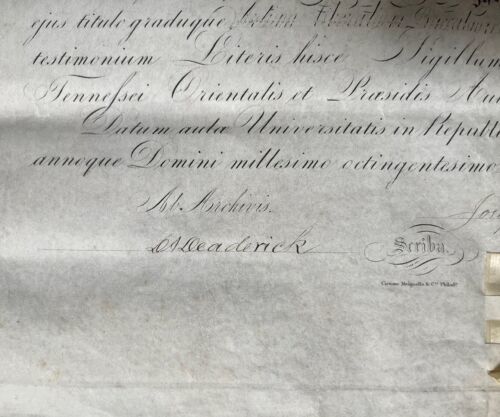 ejus titulo graduque
testimonium Literis hisce Sigillum
Tennessei Orientalis et Præsidis
Datum aulæ Universitatis in
annoque Domini millesimo octingentesimo
Ab Archivis.
Deaderick
Scriba.